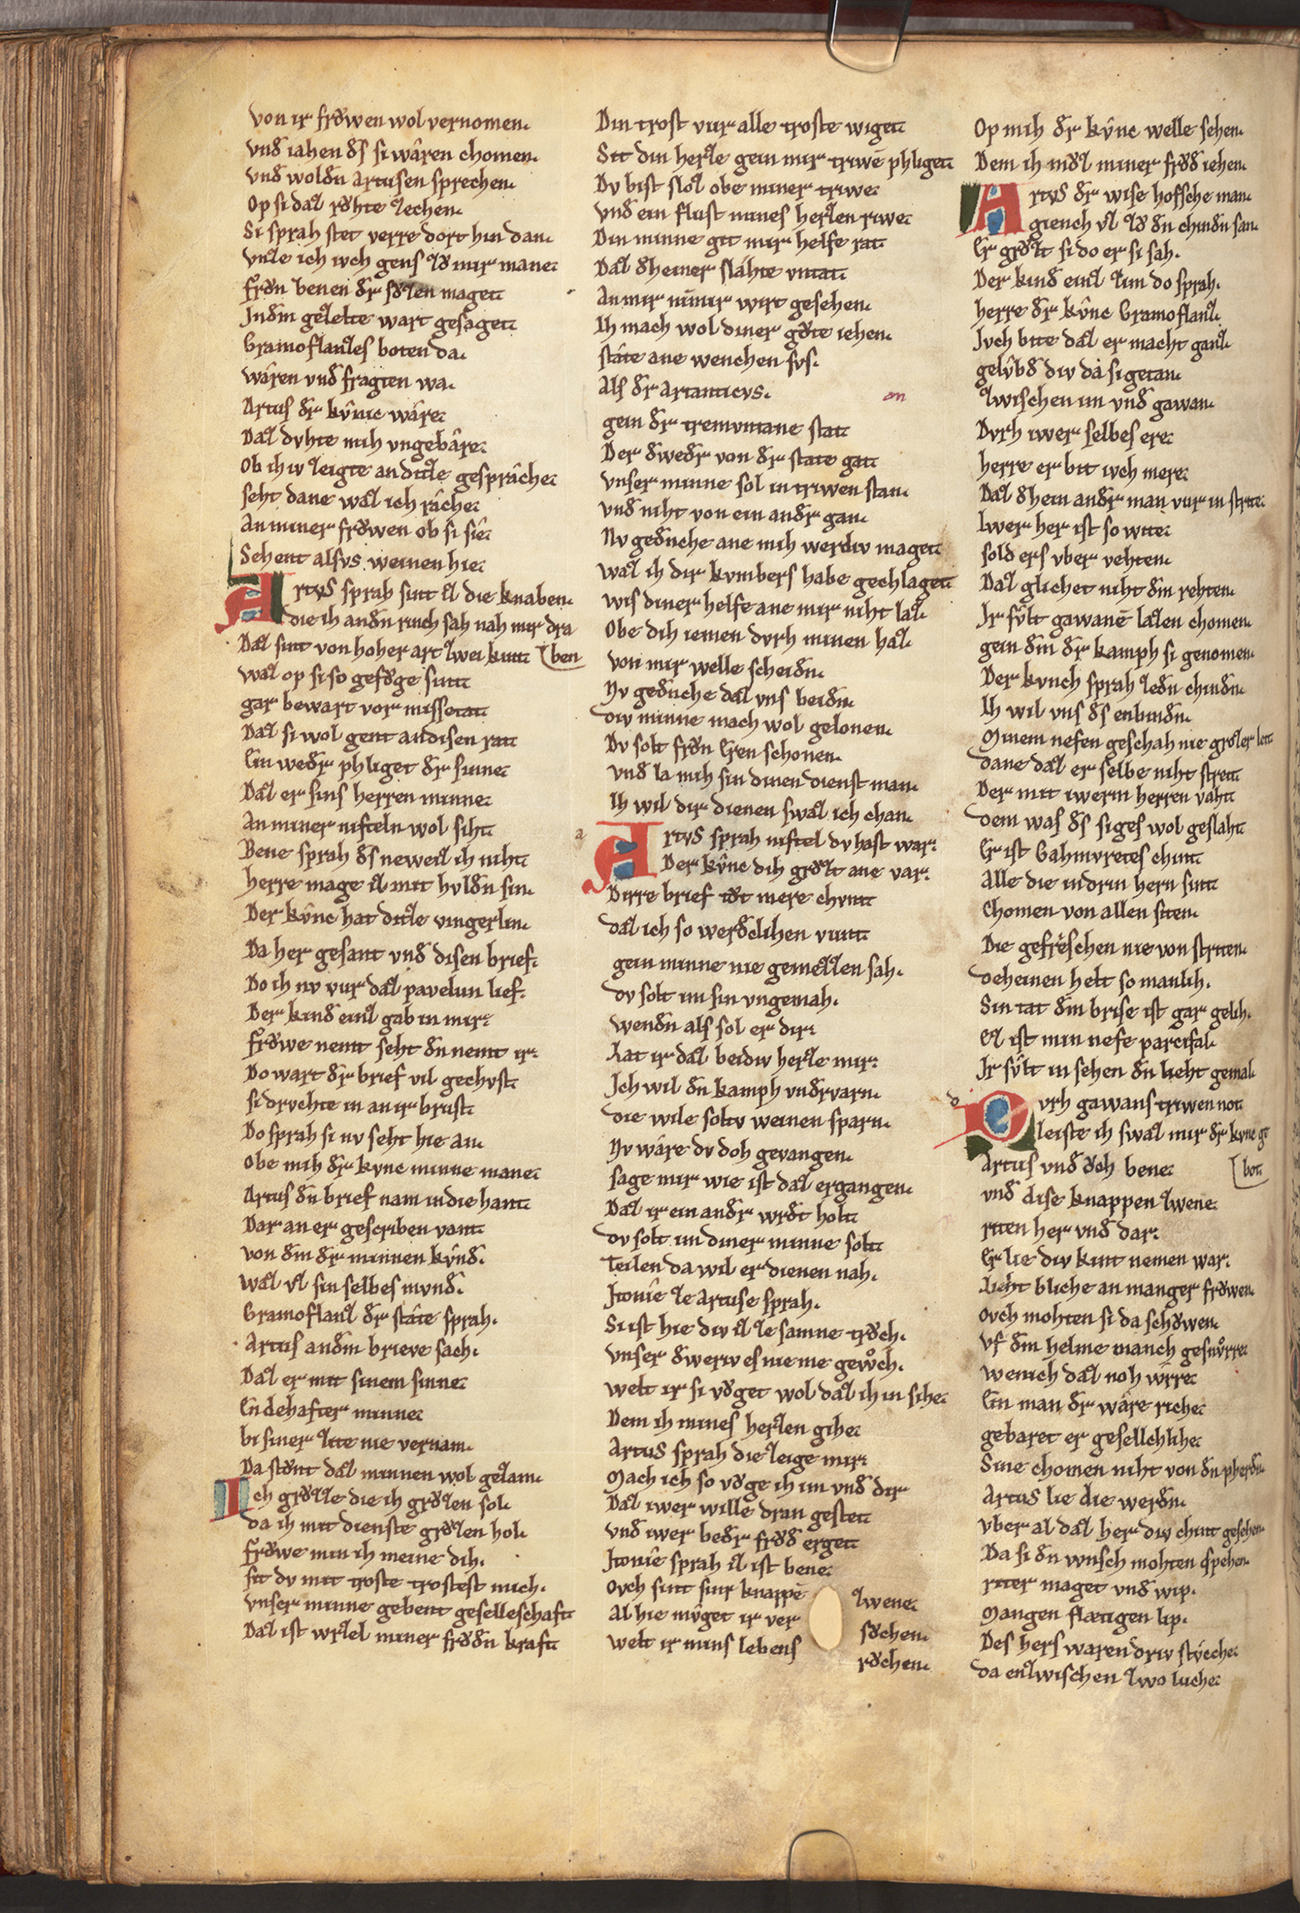 von ir frowen wol vernomen.
vnd iahen ds si wâren chomen.
vnd woldn Artusen sprechen.
Op si daz rohte zechen.
Si sprah stet verre dort hin dan.
vnze ich iuch gens zo mir mane.
fron benen dr sozen maget.
Jndm gezelte wart gesaget.
Gramoflanzes boten da.
wâren vnd fragten wa.
Artus dr kŷnic wâre.
Daz dvhte mih vngebâre.
Ob ih iv zeigte an ditze gesprâche.
seht dane waz ich râche.
An miner frowen ob si siê.
Sehent alsvs weinen hie.
Artvs sprah sint iz die knaben.
die ih andn rinch sah nah mir dra
Daz sint von hoher art zwei kint. ben
waz op si so gefoge sint.
gar bewart vor missetat.
Daz si wol gent andisen rat.
Ein wedr phliget dr sinne.
Daz er sins herren minne.
An miner nifteln wol siht.
Bene sprah ds neweiz ih niht.
herre mage iz mit hvldn sin.
Der kŷnc hat ditze vingerlin.
Da her gesant vnd disen brief.
Do ih nv vur daz pavelun lief.
Der kind einz gab in mir.
frowe nemt seht dn nemt ir.
Do wart dr brief vil gechvst.
si drvchte in an ir brust.
Do sprah si nv seht hie an.
Obe mih dr kvnc minne mane.
Artus dn brief nam in die hant.
Dar an er gescriben vant.
von dm dr minnen kŷnd.
waz vz sin selbes mvnd.
Gramoflanz dr stâte sprah.
Artus andm brieve sach.
Daz er mit sinem sinne.
Endehafter minne.
bi siner zite nie vernam.
Da stônt daz minnen wol gezam.
Ich grôzze die ih grôzen sol.
da ih mit dienste grôzen hol.
frowe min ih meine dih.
sit dv mit troste trostest mich.
vnser minne gebent geselleschaft
Daz ist wrzel miner frodn kraft
Din trost vur alle troste wiget.
Sit din herze gein mir triwe phliget.
Dv bist sloz obe miner triwe.
vnd ein flust mines herzen riwe.
Din minne git mir helfe rat.
Daz dheiner slâhte vntat.
An mir nimir wirt gesehen.
Ih mach wol diner gote iehen.
stâte ane wenchen svs.
als dr artanticvs.
gein dr tremvntane stat.
Der dwedr von dr state gat.
vnser minne sol in triwen stan.
vnd niht von ein andr gan.
Nv gedneche ane mih werdiv maget.
waz ih dir kvmbers habe gechlaget.
wis diner helfe ane mir niht laz.
Obe dih iemen dvrh minen haz.
von mir welle scheidn.
Nv gednche daz vns beidn.
div minne mach wol gelonen.
Dv solt fron Eren schonen.
vnd la mih sin dinen dienst man.
Ih wil dir dienen swaz ich chan.
Artvs sprah niftel dv hast war.
Der kŷnc dih grozt ane var.
Dirre brief tôt mere chvnt
daz ich so werdclihen vunt.
gein minne nie gemezzen sah.
dv solt im sin vngemah.
wendn als sol er dir.
Lat ir daz beidiv herze mir.
Jch wil dn kamph vndrvarn.
die wile soltv weinen sparn.
Nv wâre dv doh gevangen.
sage mir wie ist daz ergangen.
Daz ir ein andr wrdt holt.
dv solt im diner minne solt.
Teilen da wil er dienen nah.
Jtoniê ze Artuse sprah.
Si ist hie div iz ze samne trôch.
vnser dweriv es nie me gewôch.
welt ir si voget wol daz ih in sihe.
Dem ih mines herzen gihe.
Artus sprah die zeige mir.
Mach ich so voge ih im vnd dir
Daz iwer wille dran gestet.
vnd iwer bedr frod erget.
Jtoniê sprah iz ist bene.
Ovch sint sinr knappe zwene.
Al hie mŷget ir ver sôchen.
welt ir mins lebens rôchen.
Op mih dr kŷnc welle sehen.
Dem ih môz miner frod iehen.
Artvs dr wise hofsche man.
giench vz zo dn chindn san.
Er grôzt si do er si sah.
Der kind einz zim do sprah.
herre dr kŷnc Gramoflanz.
Jvch bite daz er macht ganz.
gelvbd div da si getan.
zwischen im vnd gawan.
Dvrh iwer selbes ere.
herre er bit ivch mere.
Daz dhein andr man vur in strite.
Iwer her ist so wite.
sold ers vber vehten.
Daz glichet niht dm rehten.
Jr svlt gawane lazen chomen.
gein dm dr kamph si genomen.
Der kvnch sprah zedn chindn.
Ih wil vns ds enbindn.
Minem nefen geschah nie grozer leit
dane daz er selbe niht streit
Der mit iwerm herren vaht
dem was ds siges wol geslaht
Er ist Gahmvretes chint
Alle die indrin hern sint
Chomen von allen siten.
Die gefreschen nie von striten.
deheinen helt so manlih.
Sin tat dm brise ist gar gelih.
Ez ist min nefe parcifal.
Jr svlt in sehen dn lieht gemal.
Dvrh gawans triwen not.
leiste ih swaz mir dr kvnc ge
Artus vnd ôch bene. bot.
vnd dise knappen zwene.
riten her vnd dar.
Er lie div kint nemen war.
Lieht bliche an manger frowen.
Ovch mohten si da schowen.
vf dm helme manch gesnvrre.
wenich daz noh wrre.
Ein man dr wâre riche.
gebaret er geselleliche.
Sine chomen niht von dn pherdn.
Artus lie die werdn.
vber al daz her div chint gesehen.
Da si dn wnsch mohten spehen.
riter maget vnd wip.
Mangen flætigen lip.
Des hers waren driv stvcche.
da enzwischen zwo lucche.